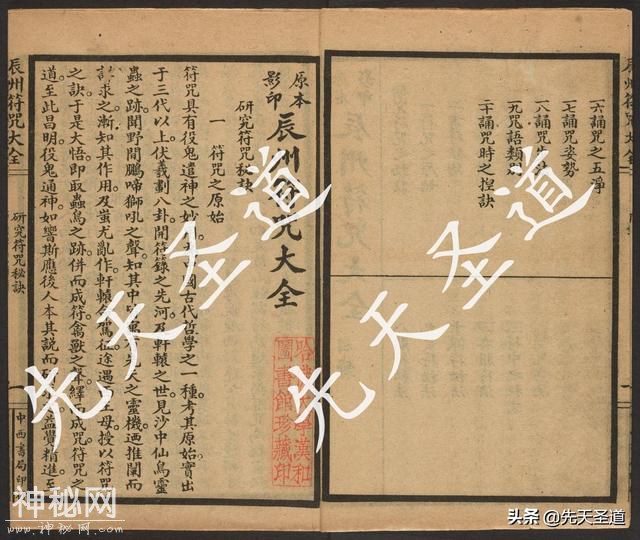 辰州符咒大全
六誦咒之五淨
七誦咒姿勢
八誦咒先
九咒語類
十誦咒時之捏訣
原本影印 辰州符咒大全
研究符咒秘訣
一 符咒之原始
符咒具有役鬼遣神之妙國古代哲學之一種。考其原始實出
于三代以上伏羲劃八卦開符籙之先河。及軒轅之世見沙中仙鳥靈
蟲之跡。聞野間鵬啼獅吼之聲。知其中先天之靈機。迺推闡而
求之。漸知其作用。及蚩尤亂作軒轅命駕征途遇西王母授以符咒
之訣。于是大悟。即取蟲鳥之跡。併而成符。禽獸之聲。繹而成咒。符咒之
道至此昌明。役鬼通神。如響斯應。後人本其說而研益覺精進。至
哈學漢和圖書館珍藏印
辰州符咒大全
研究符咒秘訣
一
中西書局印
先天圣道
先天圣道
神秘网
www.神秘网.com
头条 @先天圣道